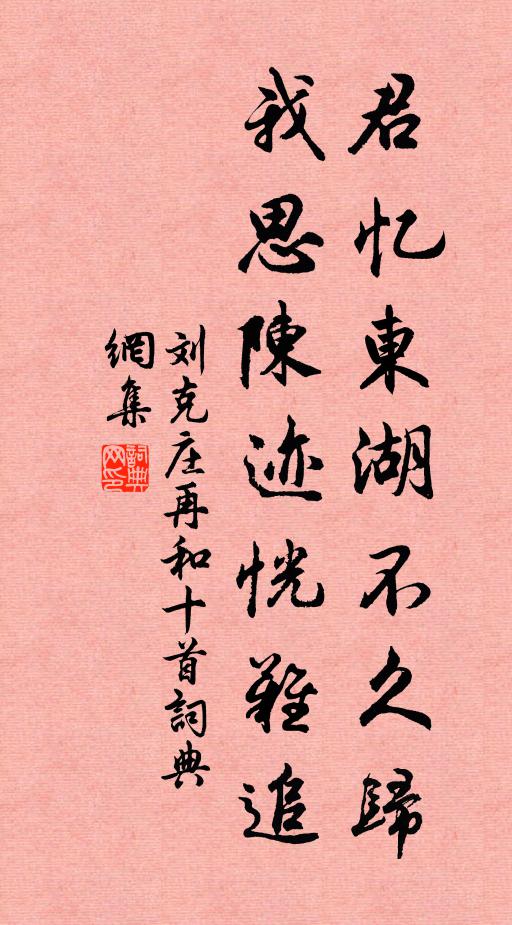 君忆東湖不久歸
我思陳迹恍難追
刘克庄再和十首詞典
網集
詞典网印